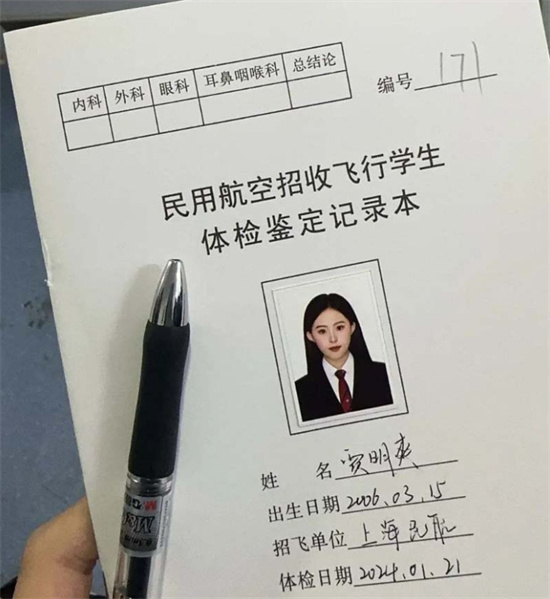 内科 外科 眼科 耳鼻咽喉科 总结论
编号 171
民用航空招收飞行学生
体检鉴定记录本
姓 名 贾明爽
出生日期 2006.03.15
招飞单位 上海民航
体检日期 2024.01.21